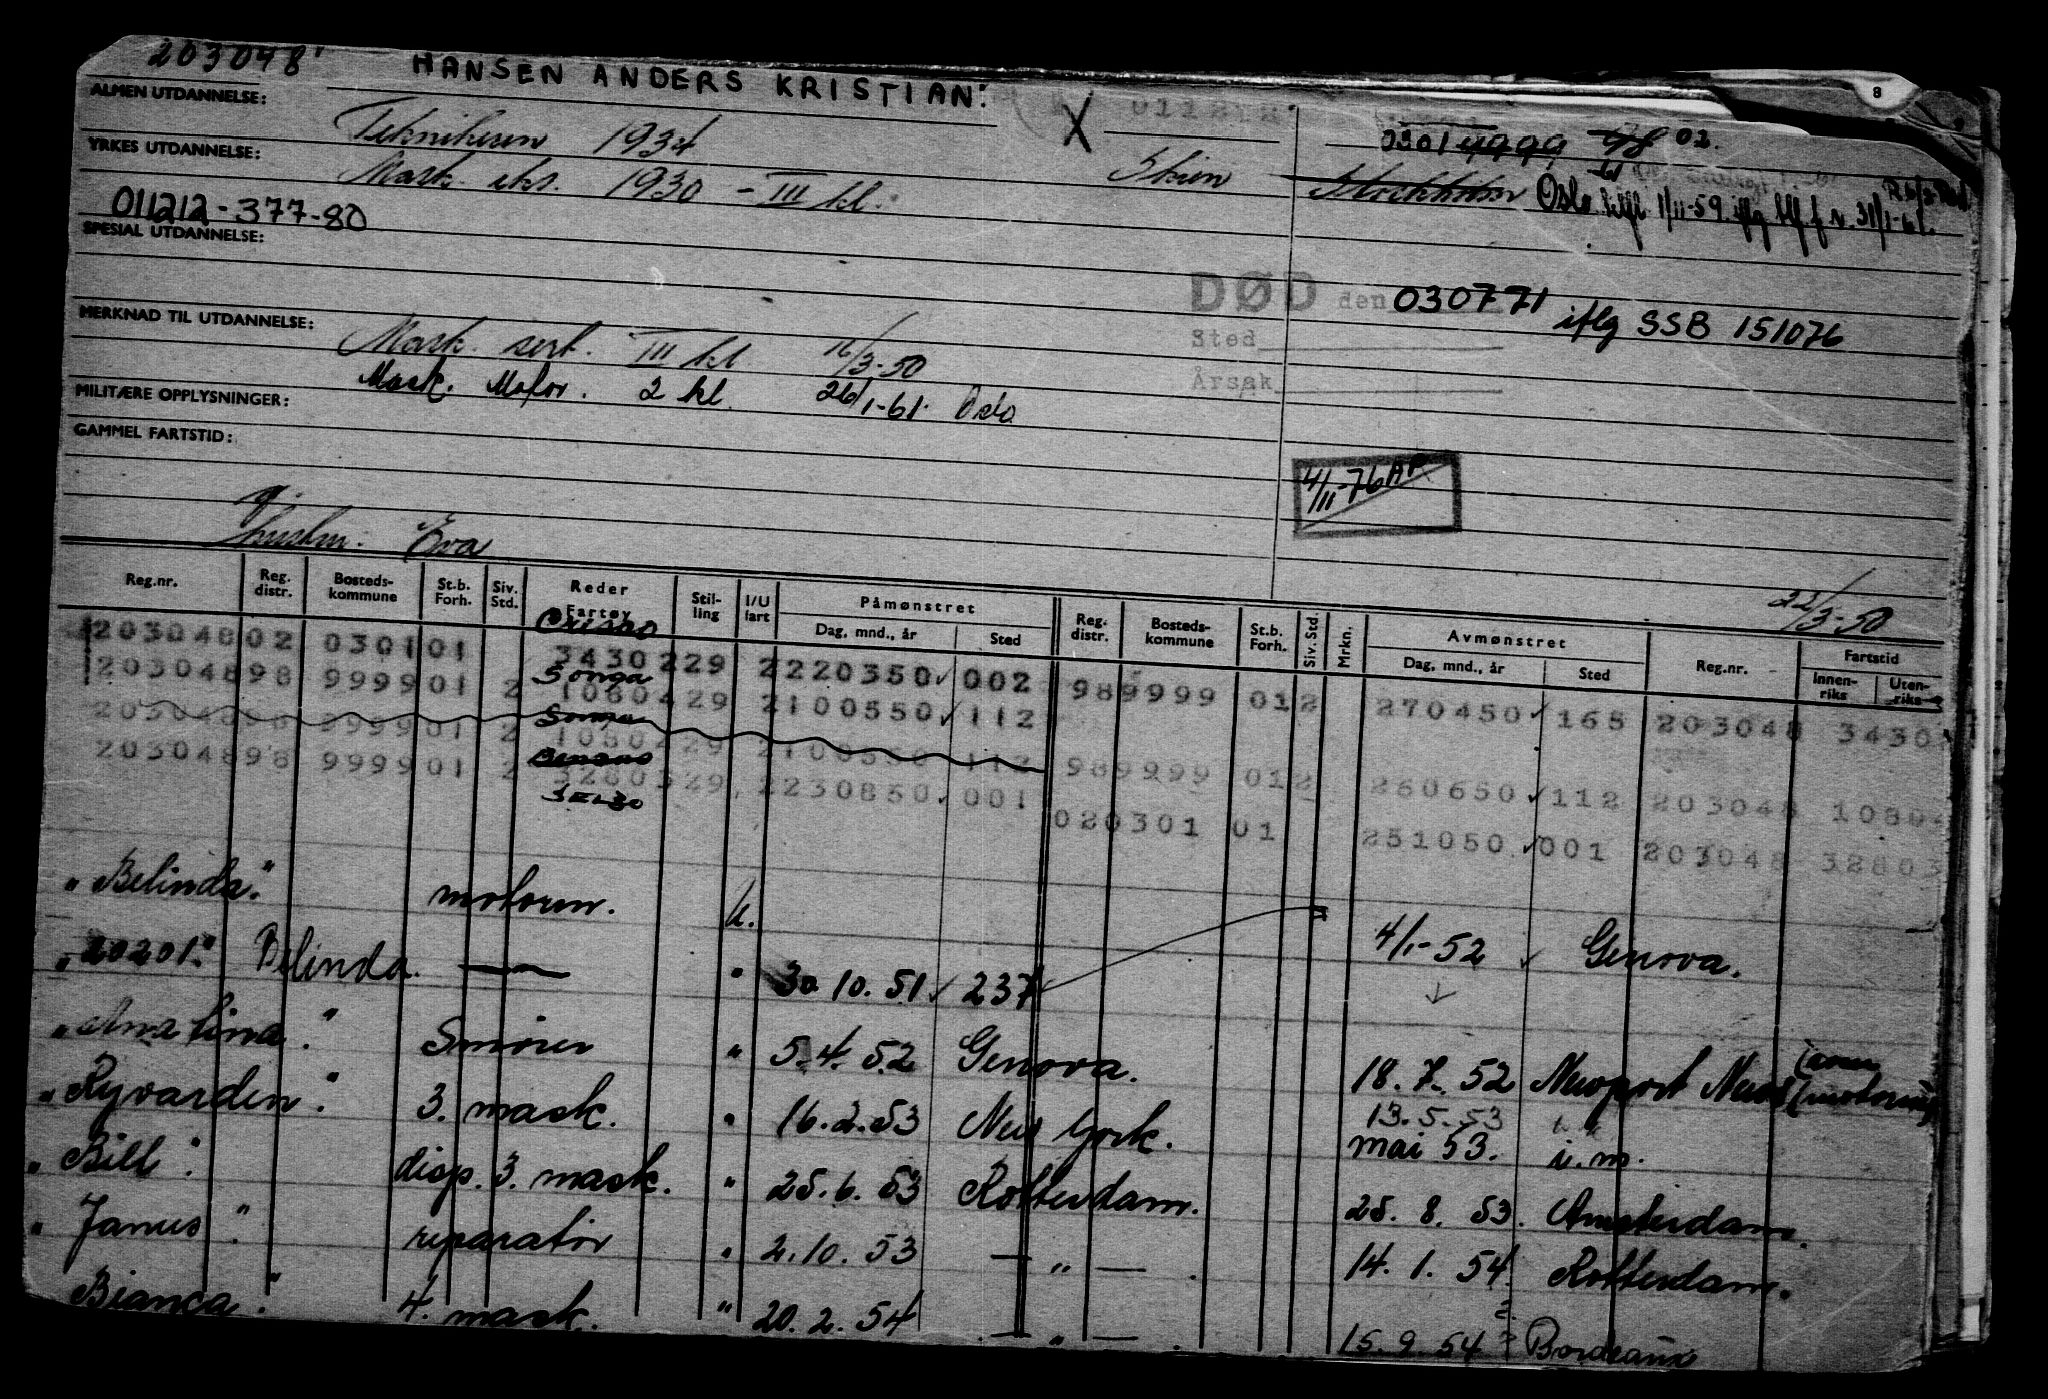 203048
HANSEN ANDERS KRISTIAN.
8
ALMEN UTDANNELSE:
Teknikeren 1934
X
011212
0301 9999 98 02.
YRKES UTDANNELSE:
Mask. eks. 1930 - III kl.
Skien
Stockholm Oslo 1/11-59 iflg 31/1-61.
011212-377-80
SPESIAL UTDANNELSE:
DØD den 030771 iflg SSB 151076
Sted
Årsak
MERKNAD TIL UTDANNELSE:
Mask. sert. III kl. 16/3-50
Mask. Motor. 2 kl. 26/1-61. Oslo
MILITÆRE OPPLYSNINGER:
GAMMEL FARTSTID:
4/11-76 AP
g.
hustru. Eva
22/3-50
Reg.nr. Reg. distr. Bosteds-kommune St.b. Forh. Siv. Std. Reder Fartøy Stil-ling I/U fart Påmønstret Dag, mnd., år Sted Reg. distr. Bosteds-kommune St.b. Forh. Siv. Std. Mrkn. Avmønstret Dag, mnd., år Sted Reg.nr. Fartstid Innen-riks Uten-riks
203048 02 0301 01 3430229 2 220350 ✓ 002 98 9999 01 2 270450 ✓ 165 203048 3430
Songa
203048 98 9999 01 2 1080429 2 100550 ✓ 112
Songa
203048 98 9999 01 2 1080429 2 100550 112 98 9999 01 2 260650 ✓ 112 203048 1080
203048 98 9999 01 2 3280329 2 230850 ✓ 001 02 0301 01 251050 ✓ 001 203048 3280
SELBO
"Belinda." motorm. u. 4/1-52 ✓ Genova.
"20201." Belinda. — " 30.10.51 ✓ 237
"Anatina." Smører " 5.4.52 Genova. 18.7.52 Newport News
"Ryvarden." 3. mask. " 16.2.53 New York. 13.5.53 " "
mai 53. u.m.
"Bill". disp. 3. mask. " 25.6.53 Rotterdam. 25.8.53. Amsterdam.
"Janus". reparatør " 2.10.53 — " — . 14.1.54. Rotterdam.
Bianca". 4. mask. " 20.2.54 — " — . 15.9.54 ? Bordeaux